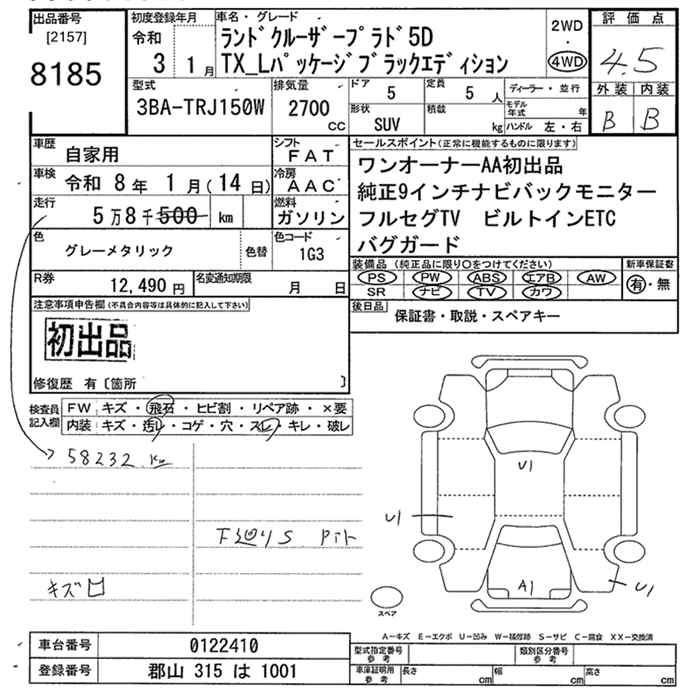 出品番号
[2157]
8185
初度登録年月
令和
3 1月
車名・グレード
ランドクルーザープラド5D
TX_Lパッケージブラックエディション
2WD
・
4WD
評価点
4.5
外装 内装
B B
型式
3BA-TRJ150W
排気量
2700
CC
ドア
5
定員
5 人
形状
SUV
積載
kg
ディーラー・並行
モデル年式 年
ハンドル 左・右
車歴
自家用
シフト
FAT
車検
令和 8年 1月(14日)
冷房
AAC
走行
5万8千500 km
燃料
ガソリン
色
グレーメタリック
色替
色コード
1G3
R券
12,490 円
名変通知期限
月 日
セールスポイント(正常に機能するものに限ります)
ワンオーナーAA初出品
純正9インチナビバックモニター
フルセグTV ビルトインETC
バグガード
装備品(純正品に限り〇をつけてください)
PS PW ABS エアB AW
SR ナビ TV カワ
新車保証書
有・無
後日品
保証書・取説・スペアキー
注意事項申告欄(不具合内容等は具体的に記入して下さい)
初出品
修復歴 有〔箇所 〕
検査員
記入欄
FW キズ・飛石・ヒビ割・リペア跡・×要
内装 キズ・汚レ・コゲ・穴・スレ・キレ・破レ
58232 km
下廻りS Pit
キズ
U1
U1
A1
U1
スペア
A-キズ E-エクボ U-凹み W-補修跡 S-サビ C-腐食 XX-交換済
車台番号
0122410
登録番号
郡山 315 は 1001
型式指定番号
参考
類別区分番号
参考
車庫証明用
参考
長さ cm
幅 cm
高さ cm